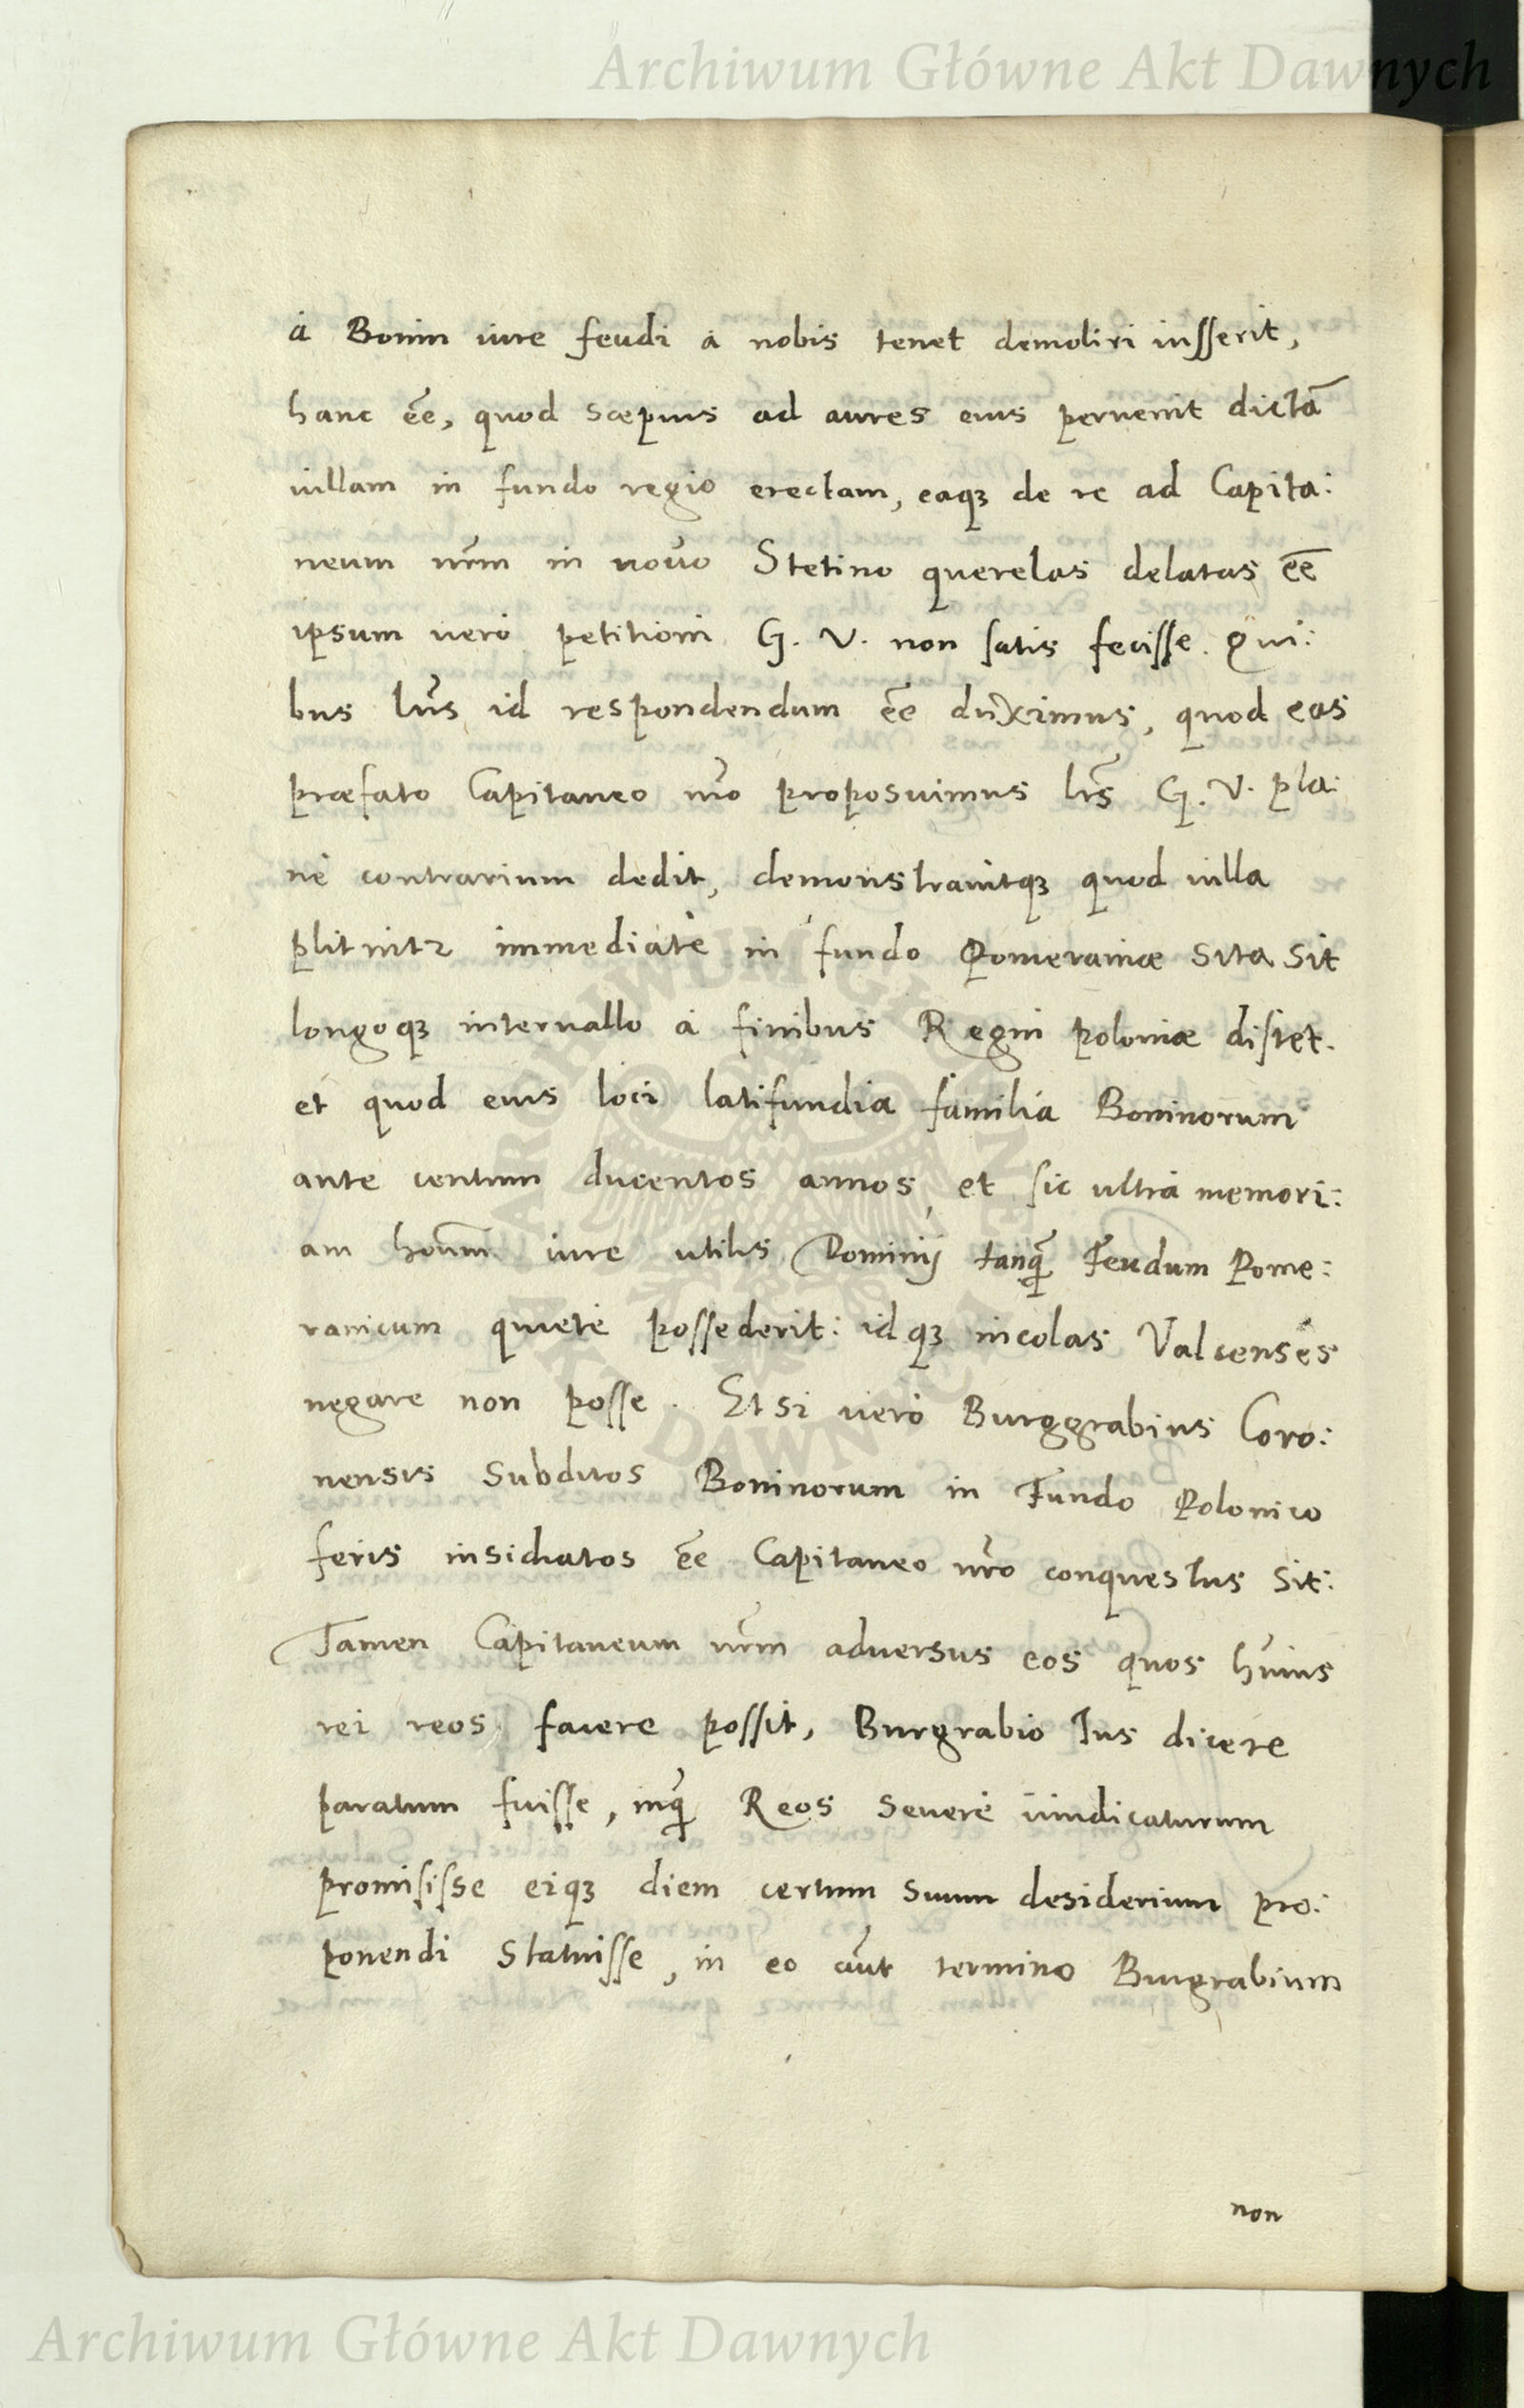 Archiwum Główne Akt Dawnych
à Bonin iure feudi à nobis tenet demoliri iusserit,
hanc eẽ, quod sæpius ad aures eius peruenit dictã
uillam in fundo regio erectam, eaqꝫ de re ad Capita:
neum nrm̃ in nouo Stetino querelas delatas eẽ
ipsum uero petitioni G. V. non satis fecisse. Qui:
bus lrĩs id respondendum eẽ duximus, quod eas
præfato Capitaneo nrõ proposuimus lrĩs G. V. pla:
nè contrarium dedit, demonstrauitqꝫ quod uilla
plitnitz immediatè in fundo Pomeraniæ sita sit
longoqꝫ interuallo à finibus Regni poloniæ distet.
et quod eius loci latifundia familia Boninorum
ante centum ducentos annos, et sic ultra memori:
am hoĩum iure utilis Dominij tanq̃ Feudum Pome:
ranicum quietè possederit: idqꝫ incolas Valcenses
negare non posse. Etsi uerò Burggrabius Coro:
nensis subditos Boninorum in Fundo Polonico
feris insidiatos eẽ Capitaneo nrõ conquestus sit:
Tamen Capitaneum nrm̃ aduersus eos quos huius
rei reos facere possit, Burgrabio Ius dicere
paratum fuisse, inq̃ Reos seuerè uindicaturum
promisisse eiqꝫ diem certum suum desiderium pro:
ponendi statuisse, in eo aũt termino Burgrabium
non
Archiwum Główne Akt Dawnych